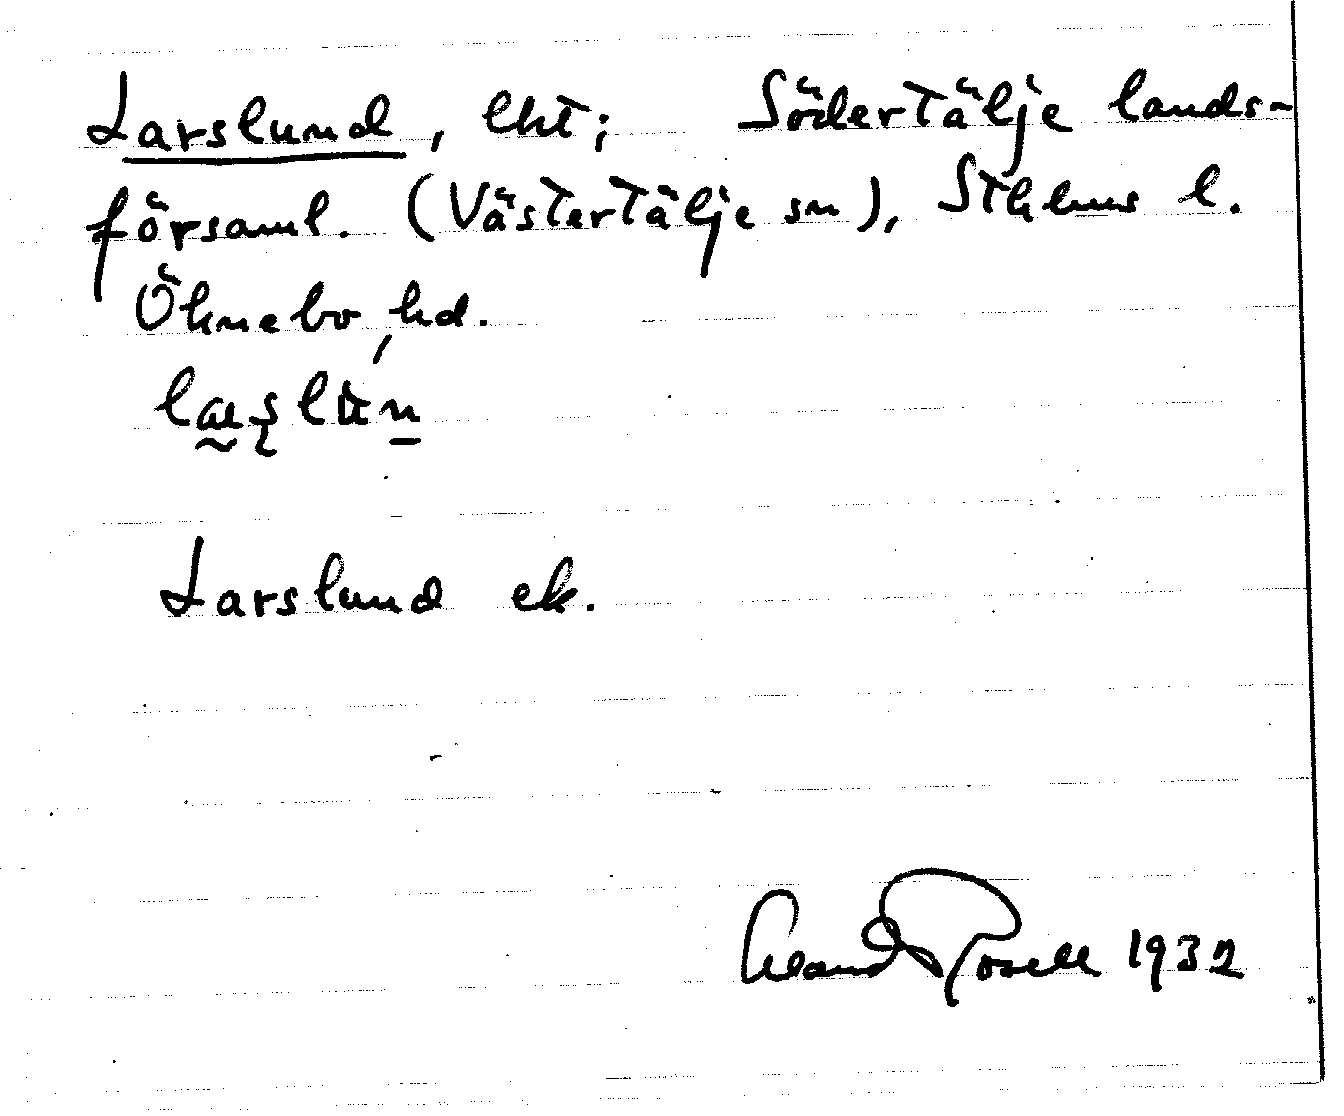 Larslund, lht; Södertälje lands-
församl. (Västertälje sn), Sthlms l.
Öknebo hd.
Larslund ek.
Erland Rosell 1932